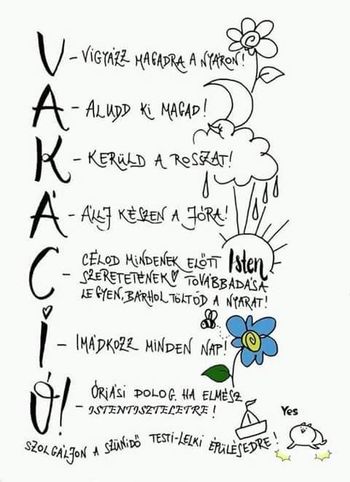 V - VIGYÁZZ MAGADRA A NYÁRON!
A - ALUDD KI MAGAD!
K - KERÜLD A ROSSZAT!
Á - ÁLLJ KÉSZEN A JÓRA!
C - CÉLOD MINDENEK ELŐTT Isten
SZERETETÉNEK TOVÁBBADÁSA
LEGYEN, BÁRHOL TÖLTÖD A NYARAT!
I - IMÁDKOZZ MINDEN NAP!
Ó! - ÓRIÁSI DOLOG, HA ELMÉSZ
ISTENTISZTELETRE!
Yes
SZOLGÁLJON A SZÜNIDŐ TESTI-LELKI ÉPÜLÉSEDRE!